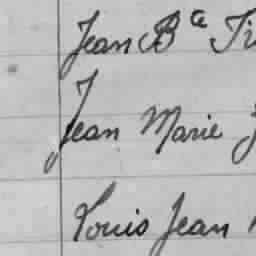 Jean Bte
Jean Marie
Louis Jean